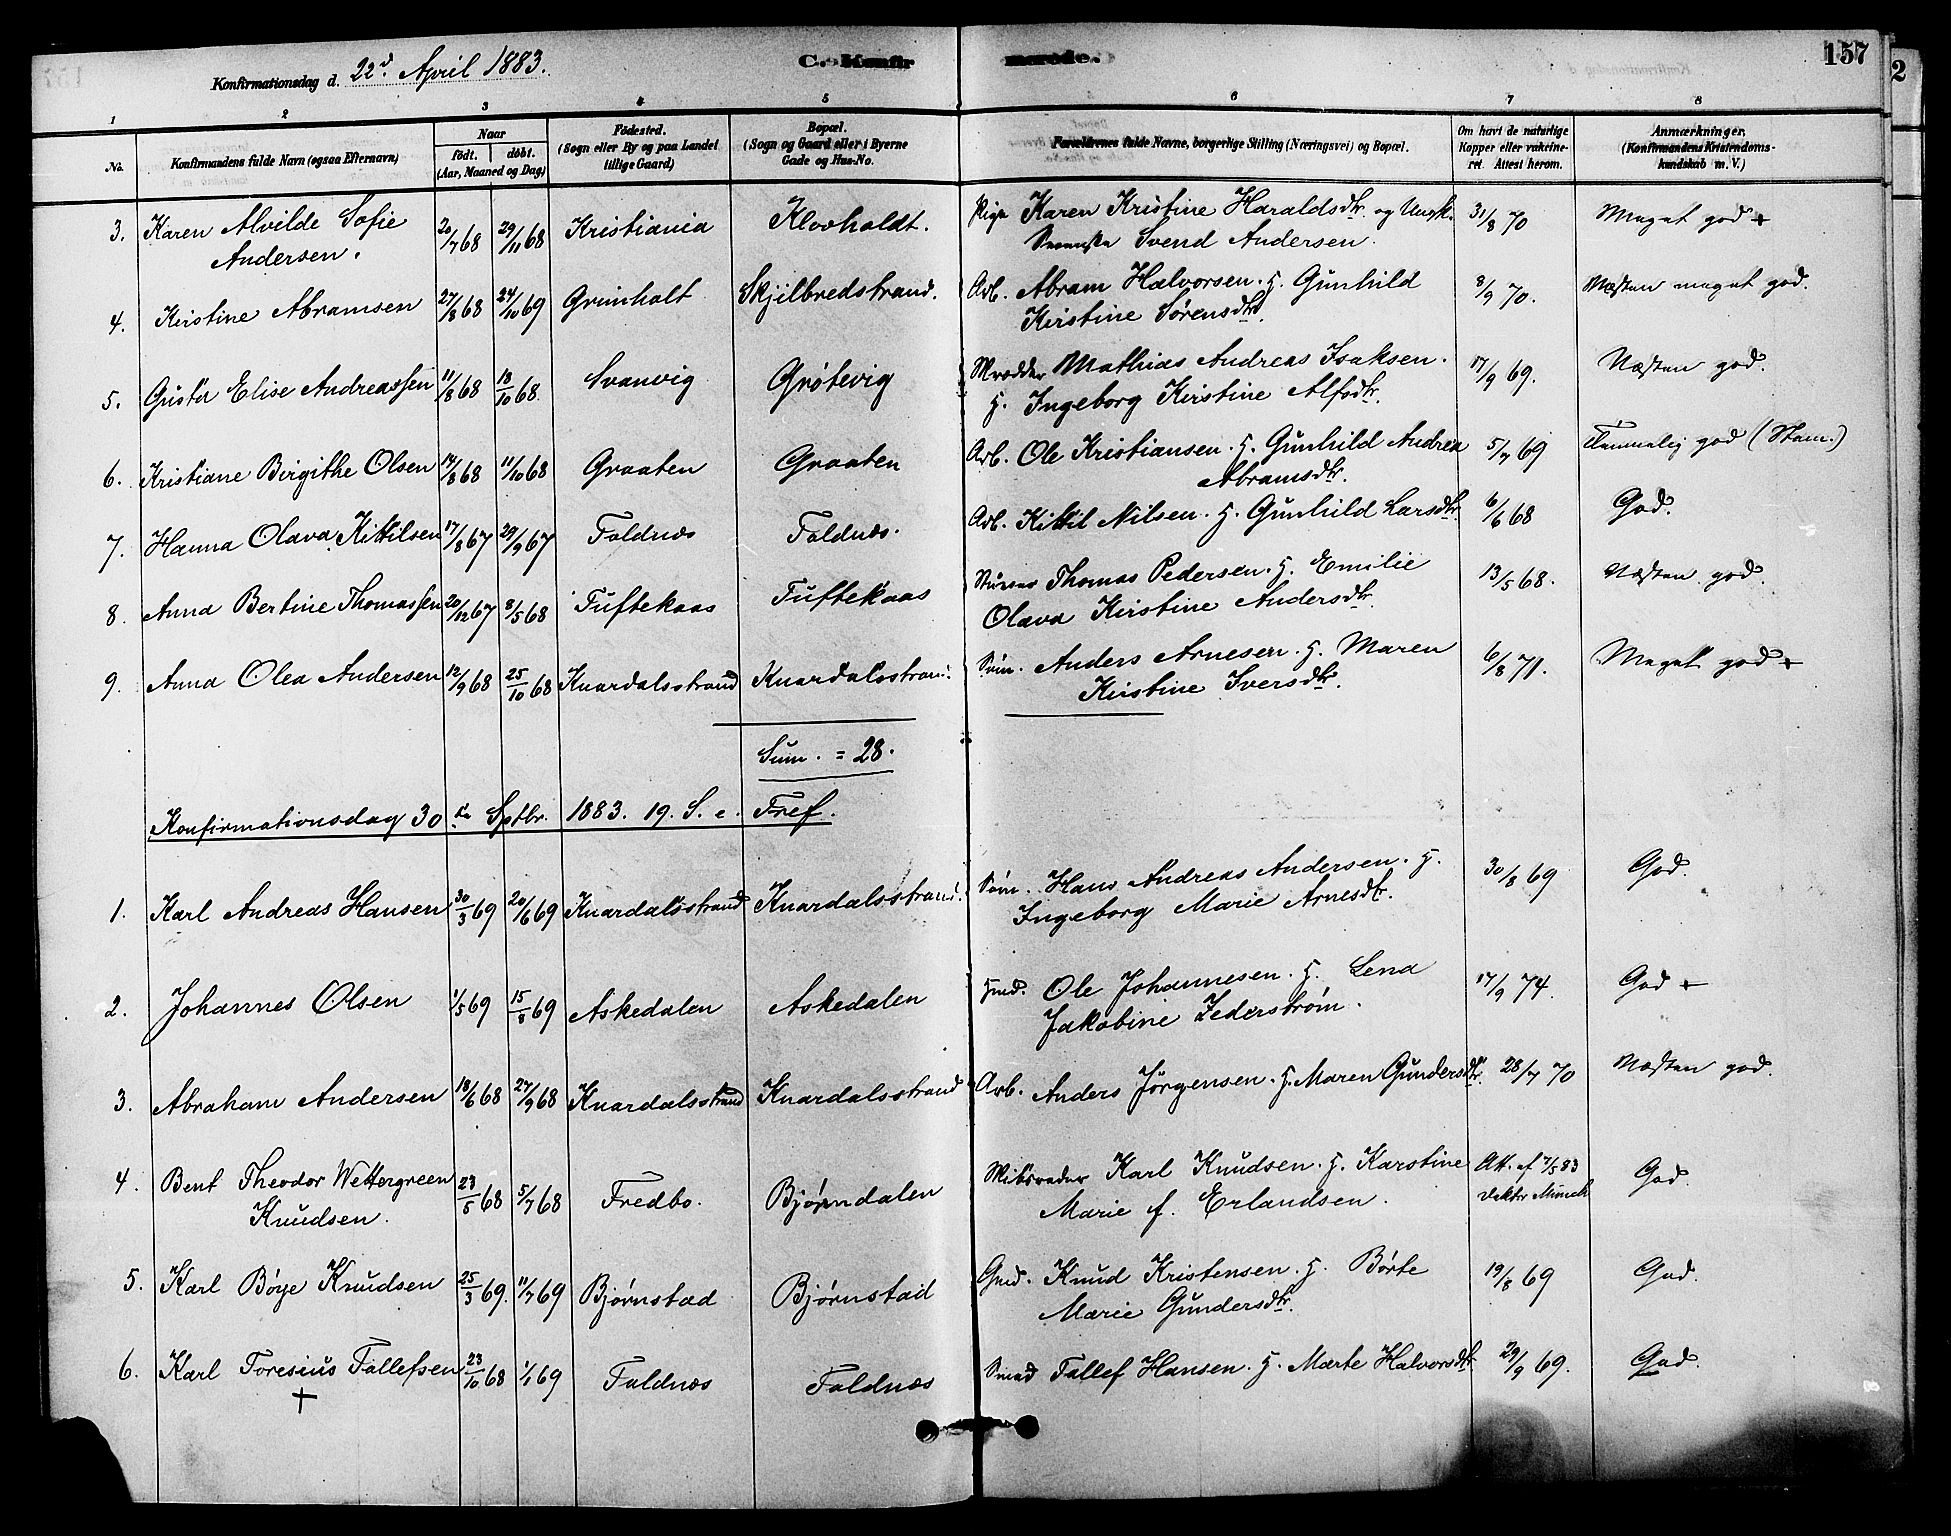 Konfirmationsdag d. 22d April 1883. C. Konfirmerede. 157
2
1 2 3 4 5 6 7 8
No. Konfirmandens fulde Navn (ogsaa Efternavn) Naar født. døbt. (Aar, Maaned og Dag) Fødested. (Sogn eller By og paa Landet tillige Gaard) Bopæl. (Sogn og Gaard eller i Byerne Gade og Hus-No. Forældrenes fulde Navne, borgerlige Stilling (Næringsvei) og Bopæl. Om havt de naturlige Kopper eller vakcineret. Attest herom. Anmærkninger. (Konfirmandens Kristendomskundskab m. V.)
3. Karen Alvilde Sofie 20/7 68 29/11 68 Kristiania Klovholdt. Pige Karen Kristine Haraldsdtr. og Ungk. 31/8 70 Meget god +
Andersen. Svenske Svend Andersen.
4. Kirstine Abramsen 27/8 68 24/10 69 Grimholt Skjilbredstrand. Arb. Abram Halvorsen. H. Gunhild 8/9 70. Næsten meget god.
Kirstine Sørensdtr.
5. Gusta Elise Andreassen 11/8 68 18/10 68. Svanvig Grøtevig Mathias Andreas Isaksen. 17/9 69. Næsten god.
H. Ingeborg Kirstine Alfsdtr.
6. Kristiane Birgithe Olsen 14/8 68 11/10 68 Graaten Graaten Arb. Ole Kristiansen. H. Gunhild Andrea 5/7 69 Temmelig god (Stam.)
Abramsdtr.
7. Hanna Olava Kittilsen 17/8 67 29/9 67 Foldnæs Foldnæs. Arb. Kittil Nilsen. H. Gunhild Larsdtr. 6/6 68 God.
8. Anna Bertine Thomassen 20/12 67 8/5 68 Tuftekaas Tuftekaas Thomas Pedersen. H. Emilie 13/5 68. Næsten god.
Olava Kirstine Andersdtr.
9. Anna Olea Andersen 12/9 68 25/10 68 Knardalsstrand Knardalsstrand Søm. Anders Arnesen. H. Maren 6/8 71. Meget god +
Kirstine Iversdtr.
Sum. = 28.
Konfirmationsdag 30 te Septbr. 1883. 19. S. e. Tref.
1. Karl Andreas Hansen 30/3 69 20/6 69 Knardalsstrand Knardalsstrand. Søm. Hans Andreas Andersen. H. 30/8 69 God.
Ingeborg Marie Arnesdt.
2. Johannes Olsen 1/5 69 15/8 69 Askedalen Askedalen Hmd. Ole Johannesen. H. Lena 17/9 74. God +
Jakobine Zederstrøm.
3. Abraham Andersen 18/6 68 27/9 68 Knardalsstrand Knardalsstrand Arb. Anders Jörgensen. H. Maren Gundersdtr. 28/7 70 Næsten god.
4. Bent Theodor Wettergreen 23/5 68 5/7 68 Fredbo. Bjørndalen Skibsreder Karl Knudsen. H. Karstine Att. af 7/5 83 God.
Knudsen. Marie f. Erlandsen. Doktor Munch
5. Karl Böye Knudsen 25/3 69. 11/7 69 Bjørnstad Bjørnstad Gmd. Knud Kristensen. H. Børte 19/8 69 God.
Marie Gundersdtr.
6. Karl Toresius Tollefsen 23/10 68 1/1 69 Foldnæs Foldnæs Smed Tollef Hansen. H. Marte Halvorsdtr. 29/9 69. God.
+